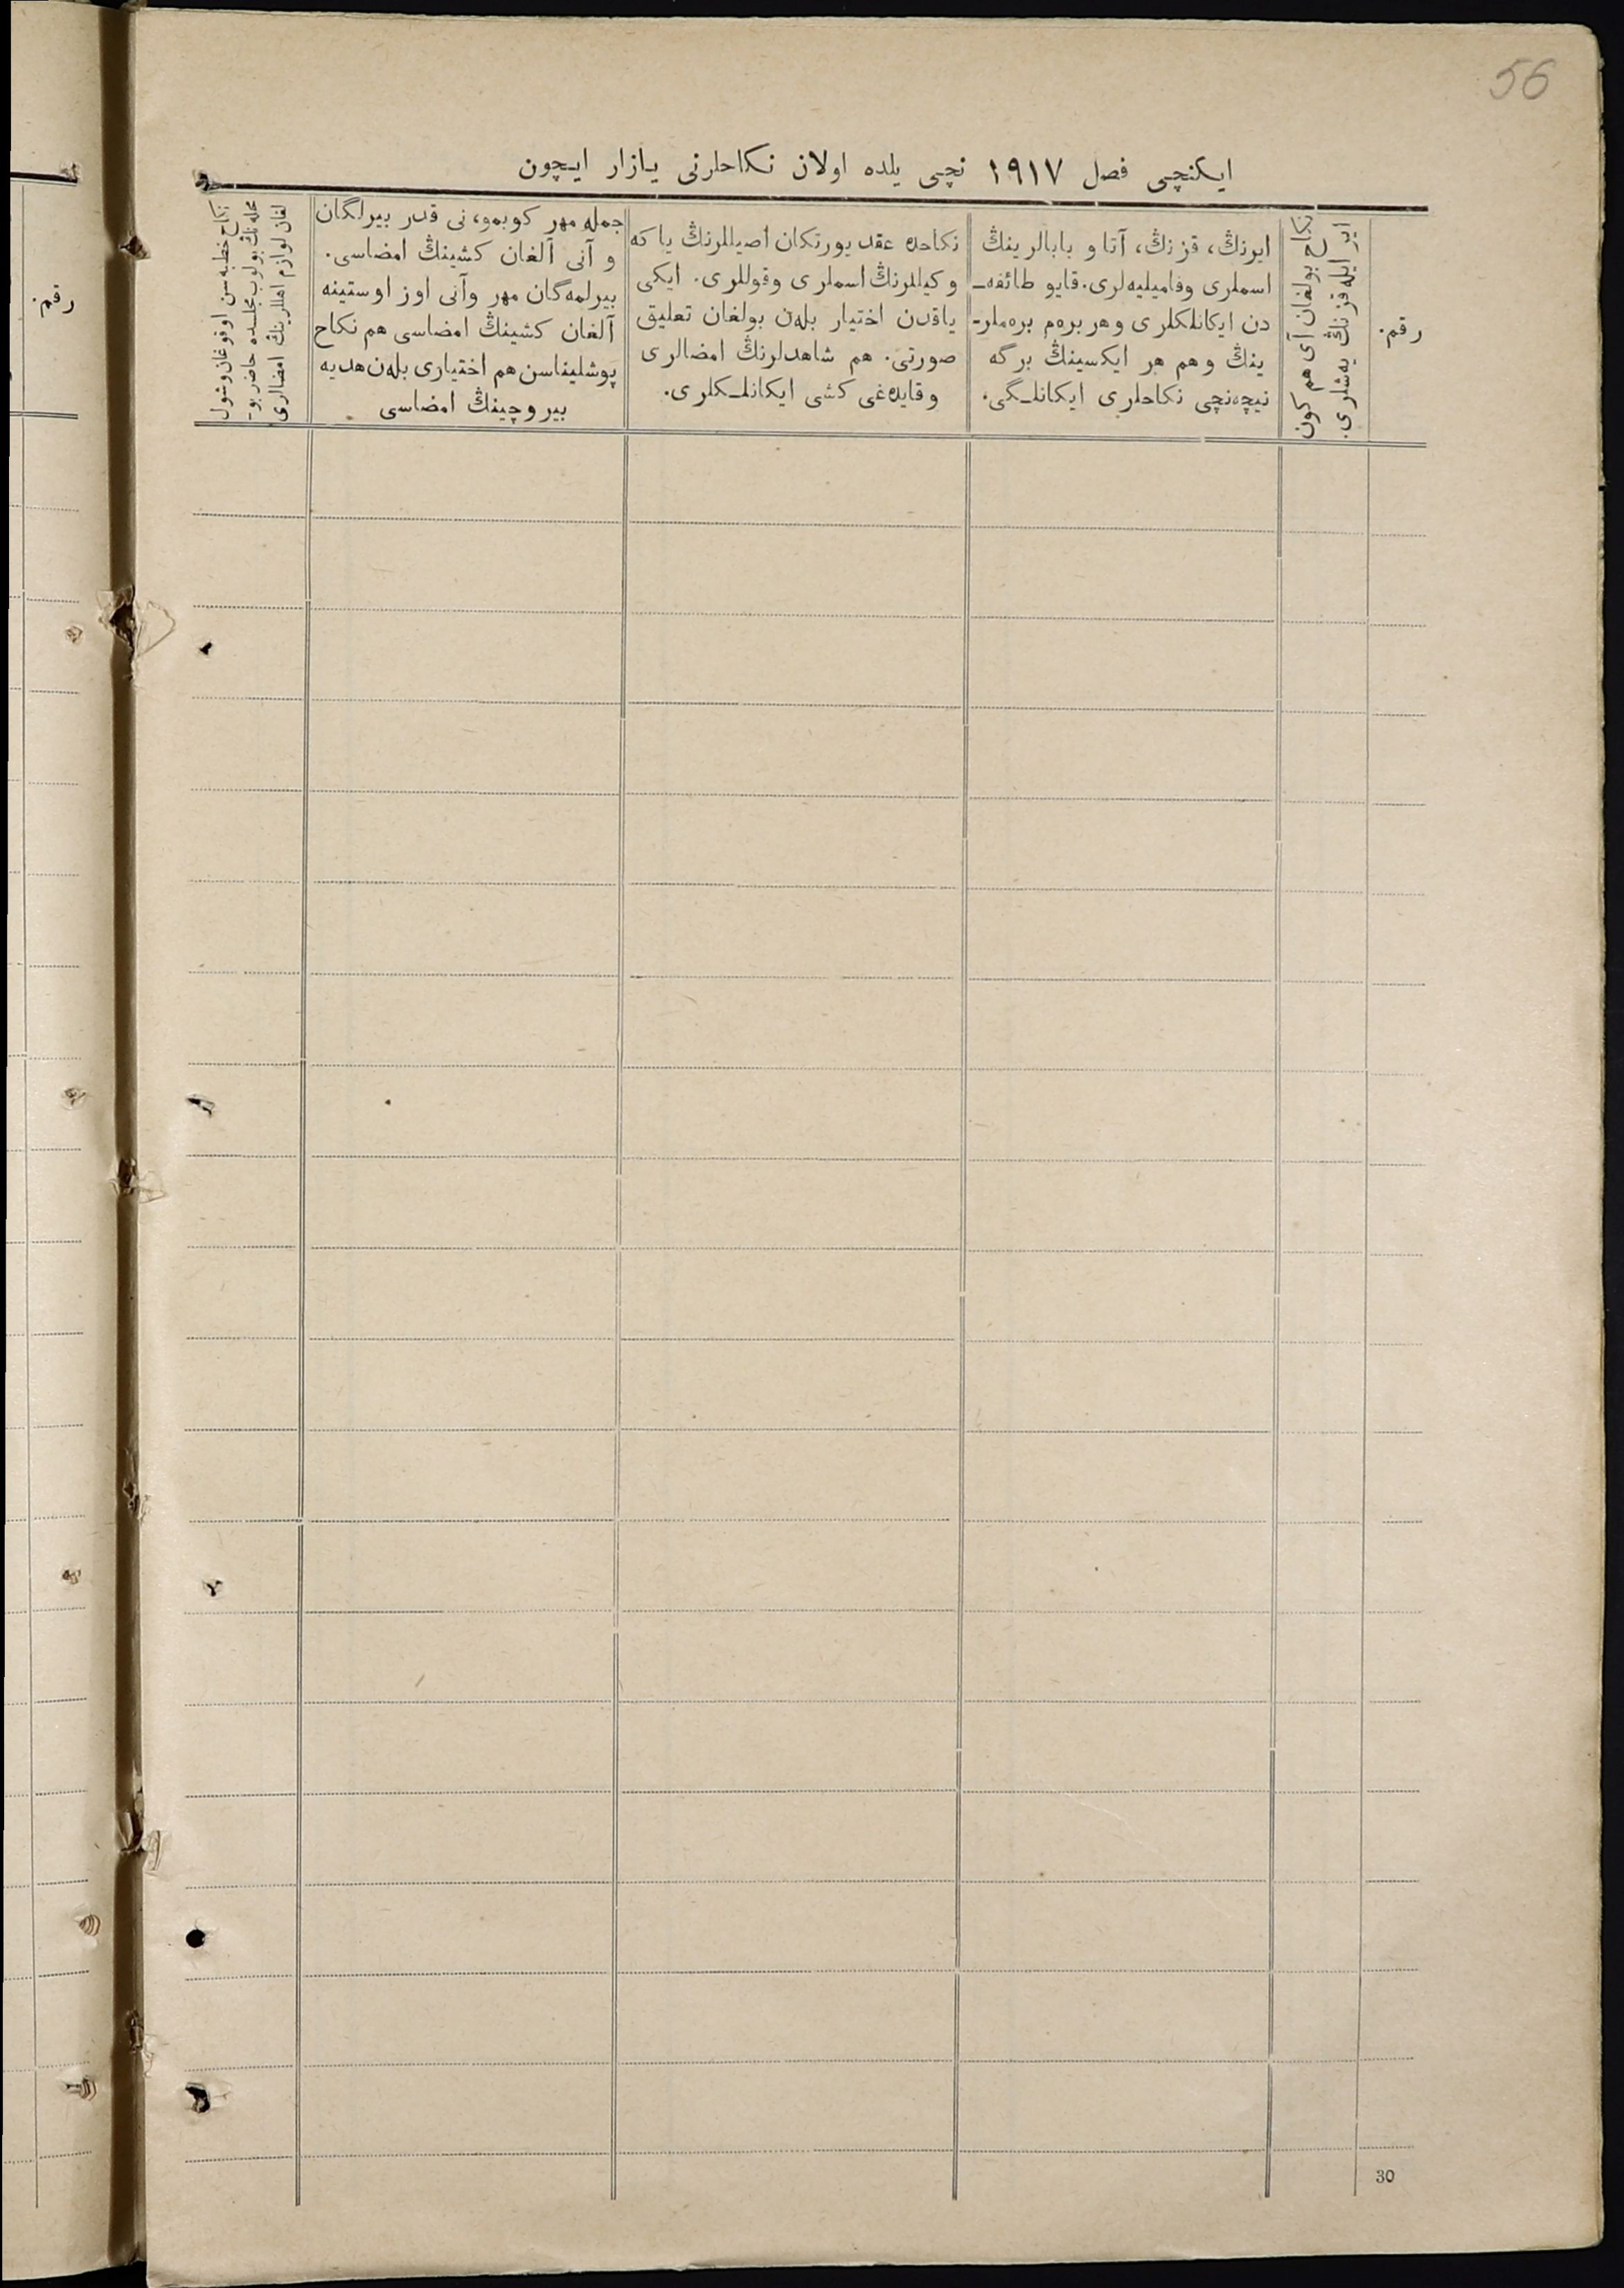 56
ایکنچی فصل ١٩١٧ نچی یلده اولان نکاحلرنی یازار ایچون
رقم.
ایر ایله قزنڭ یه‌شلری.
نکاح بولغان آی هم کون
ایرنڭ، قزنڭ، آتا و بابالرینڭ
اسملری وفامیلیه‌لری. قایو طائفه‌ـ
دن ایکانلکلری و هر بره‌م بره‌ملرـ
ینڭ و هم هر ایکسینڭ برگه
نیچه‌نچی نکاحلری ایکانلـگی.
نکاحده عقد یورتکان اصیللرنڭ یا که
وکیللرنڭ اسملری وقوللری. ایکی
یاقدن اختیار بله‌ن بولغان تعلیق
صورتی. هم شاهدلرنڭ امضالری
و قایده‌غی کشی ایکانلـکلری.
جمله مهر کوبمو، نی قدر بیرلگان
و آنی آلغان کشینڭ امضاسی.
بیرلمه‌گان مهر وآنی اوز اوستینه
آلغان کشینڭ امضاسی هم نکاح
پوشلیناسن هم اختیاری بله‌ن هدیه
بیروچینڭ امضاسی
نکاح خطبه‌سن اوقوغان وشول
محله‌نڭ بولوب مجلسده حاضر بوـ
لغان لوازم اهللرینڭ امضالری
رقم.
30